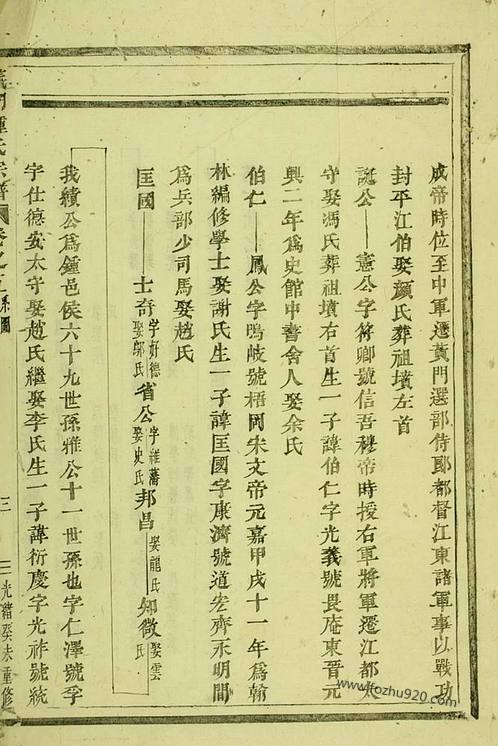 成帝時位至中軍遷黃門選部侍郎都督江東諸軍事以戰功
封平江伯娶顏氏葬祖墳左首
誕公——憲公字符卿號信吾穆帝時授右軍將軍遷江都太
守娶馮氏葬祖墳右首生一子諱伯仁字光義號畏庵東晉元
興二年爲史館中書舍人娶余氏
伯仁——鳳公字鳴岐號梧岡宋文帝元嘉甲戌十一年爲翰
林編修學士娶謝氏生一子諱匡國字康濟號道宏齊永明間
爲兵部少司馬娶趙氏
匡國——士奇字好德娶鄔氏省公字維藩娶史氏邦昌娶龍氏知微娶雲氏
我續公爲鍾邑侯六十九世孫雅公十一世孫也字仁澤號季
字仕德安太守娶趙氏繼娶李氏生一子諱衍慶字光祚號統
義門鍾氏宗譜 卷之 系圖
三
光緒癸未重修
www.fozhu920.com